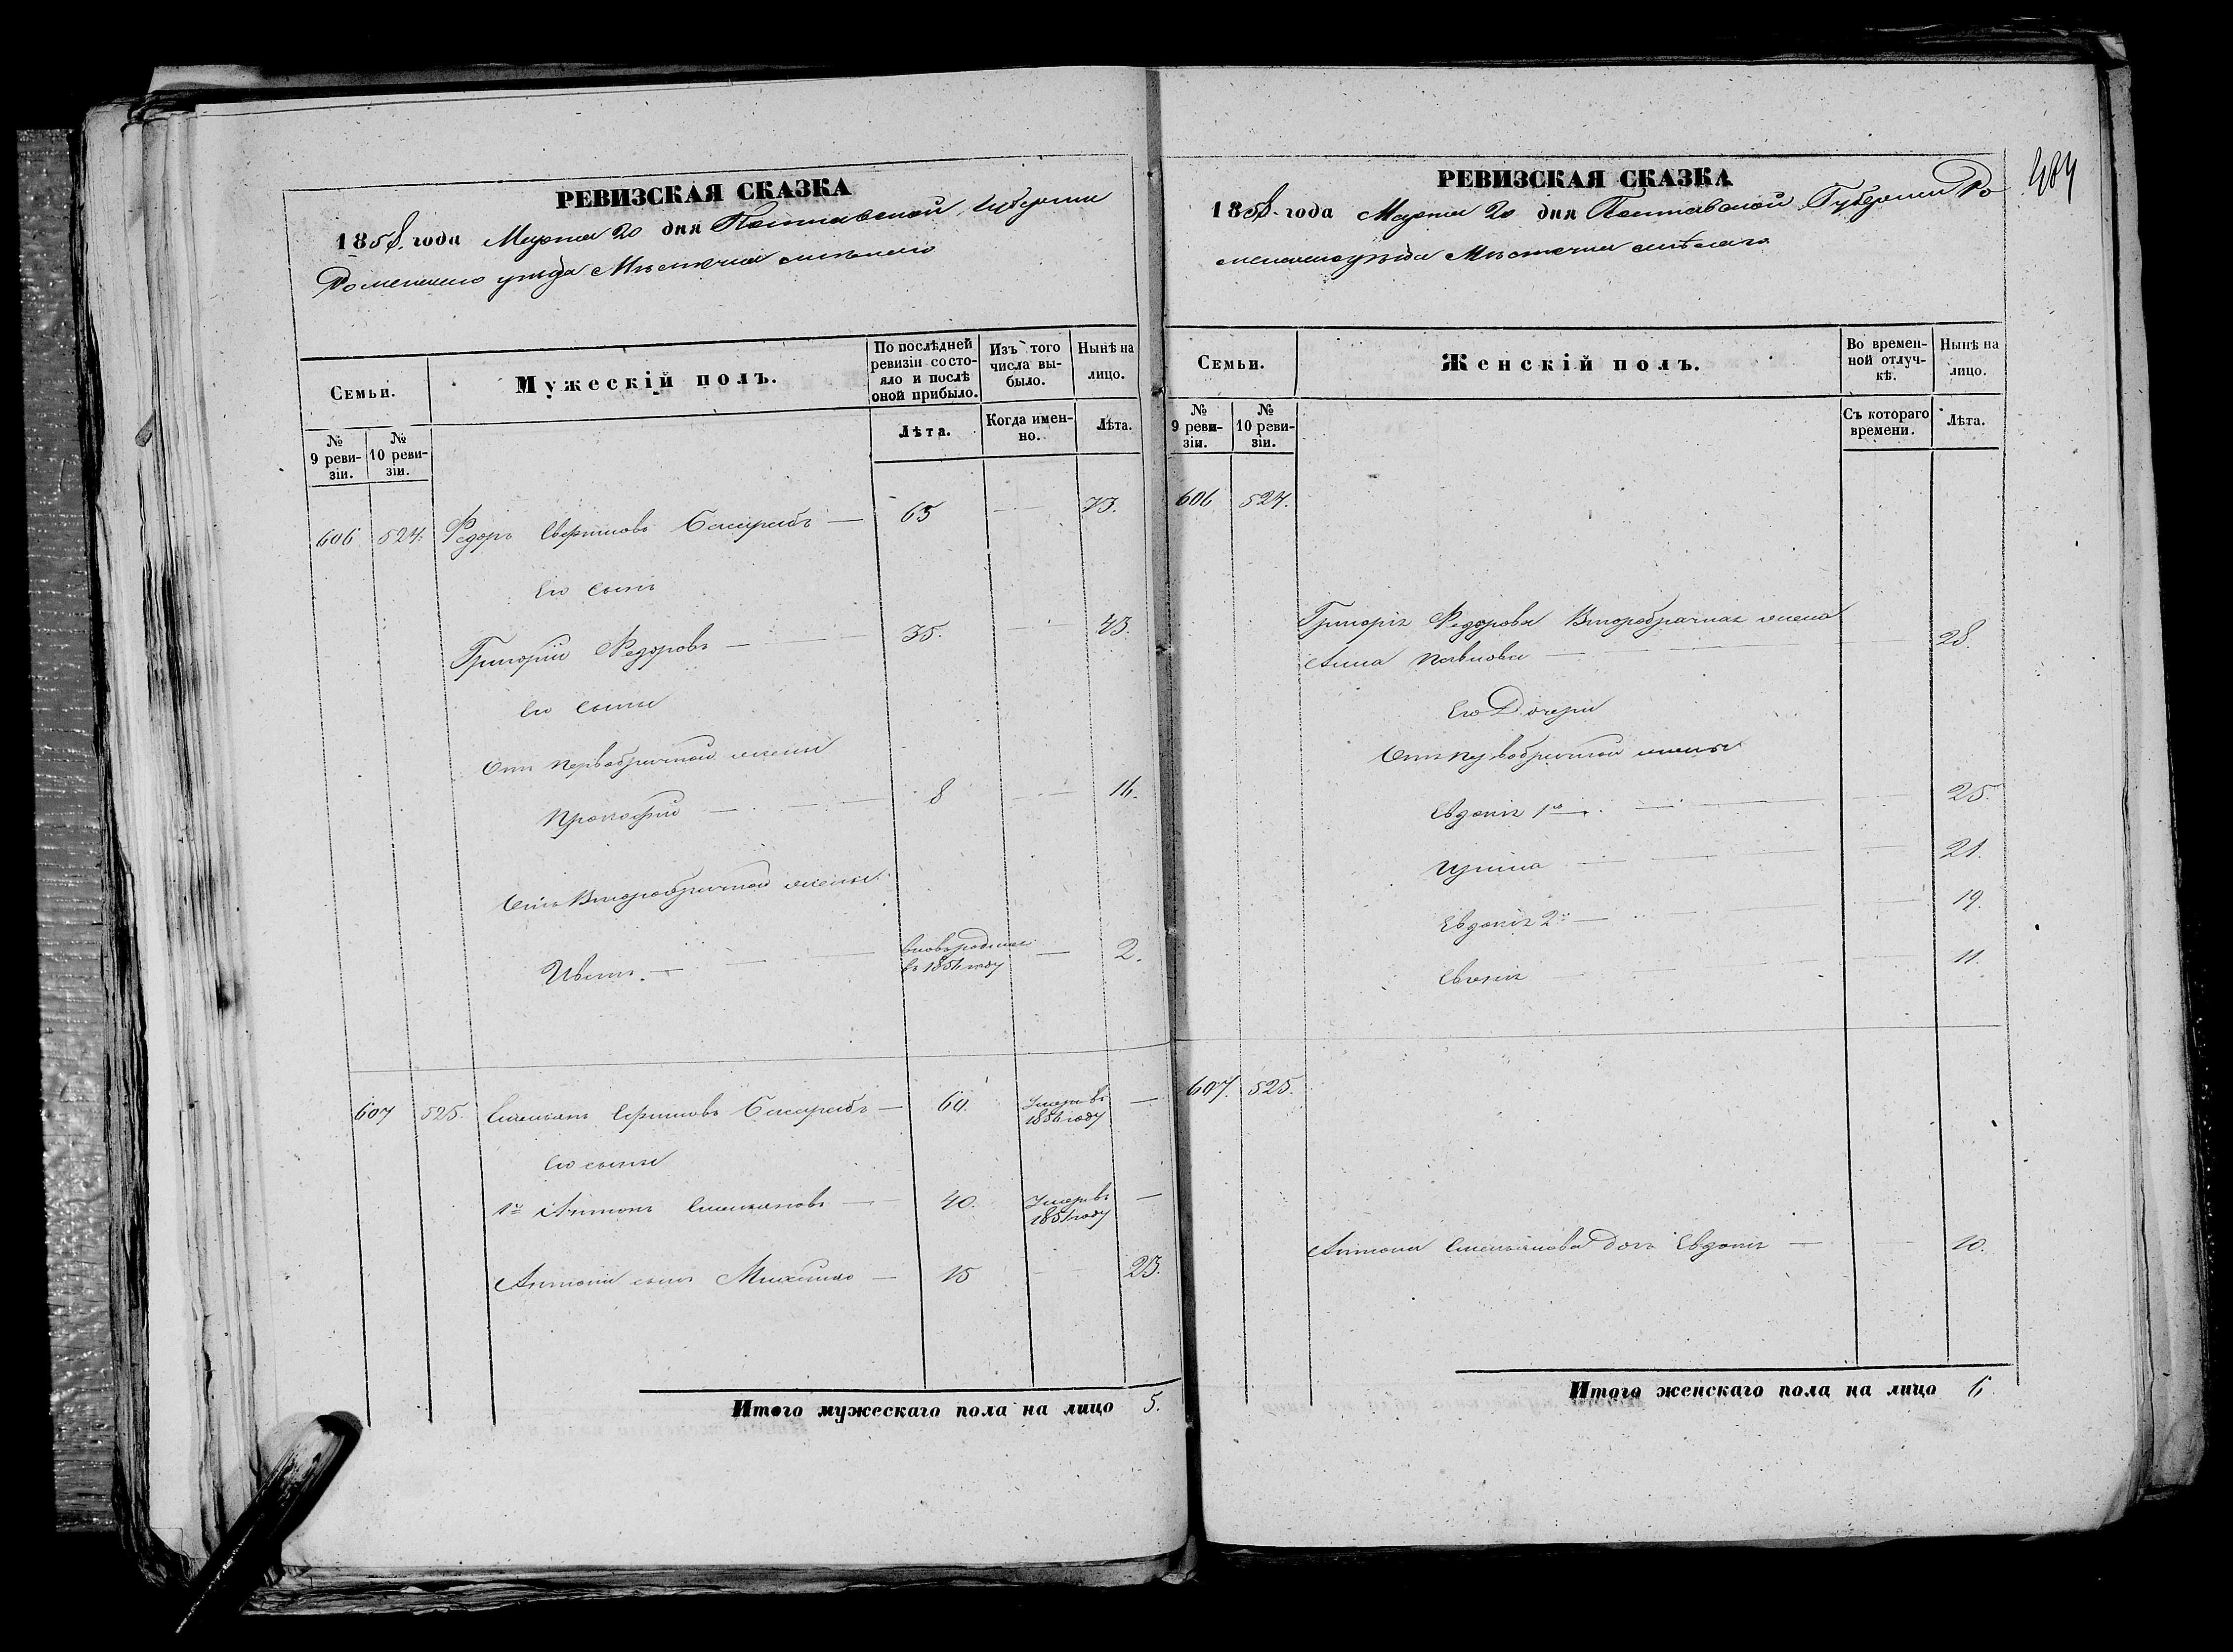 РЕВИЗСКАЯ СКАЗКА
1858 года Марта 20 дня Полтавской Губернии
Роменского уезда Местечка Смелого
Семьи.
Мужескій полъ.
По послѣдней ревизіи состояло и послѣ оной прибыло.
Изъ того числа выбыло.
Нынѣ на лицо.
№ 9 ревизіи.
№ 10 ревизіи.
Лѣта.
Когда именно.
Лѣта.
606 524. Федоръ Бессарабъ — 65 — 73.
Его сынъ
Григорій Федоровъ — 35. — 43.
Его сыны
Отъ первобрачной жены
Прокофій — 8 — 16.
Отъ Второбрачной жены
Иванъ — — 2.
607 525. Емельянъ Бессарабъ — 60. Умеръ въ 1856 году —
Его сыны
1й Антонъ Емельяновъ — 40. Умеръ въ 1851 году —
Антона сынъ Михайло — 15 — 23.
Итого мужескаго пола на лицо 5.
РЕВИЗСКАЯ СКАЗКА
1858 года Марта 20 дня Полтавской Губерніи Ро
менского уѣзда Местечка Смѣлого
484
Семьи.
Женскій полъ.
Во временной отлучкѣ.
Нынѣ на лицо.
№ 9 ревизіи.
№ 10 ревизіи.
Съ котораго времени.
Лѣта.
606 524.
Григорія Федорова Второбрачная жена
Анна Павлова — 28.
Его Дочери
Отъ первобрачной жены
Евдокія 1я — 25.
Ирина — 21.
Евдокія 2я — 19.
11.
607. 525.
Антона Емельянова дочь Евдокія — 10.
Итого женскаго пола на лицо 6.